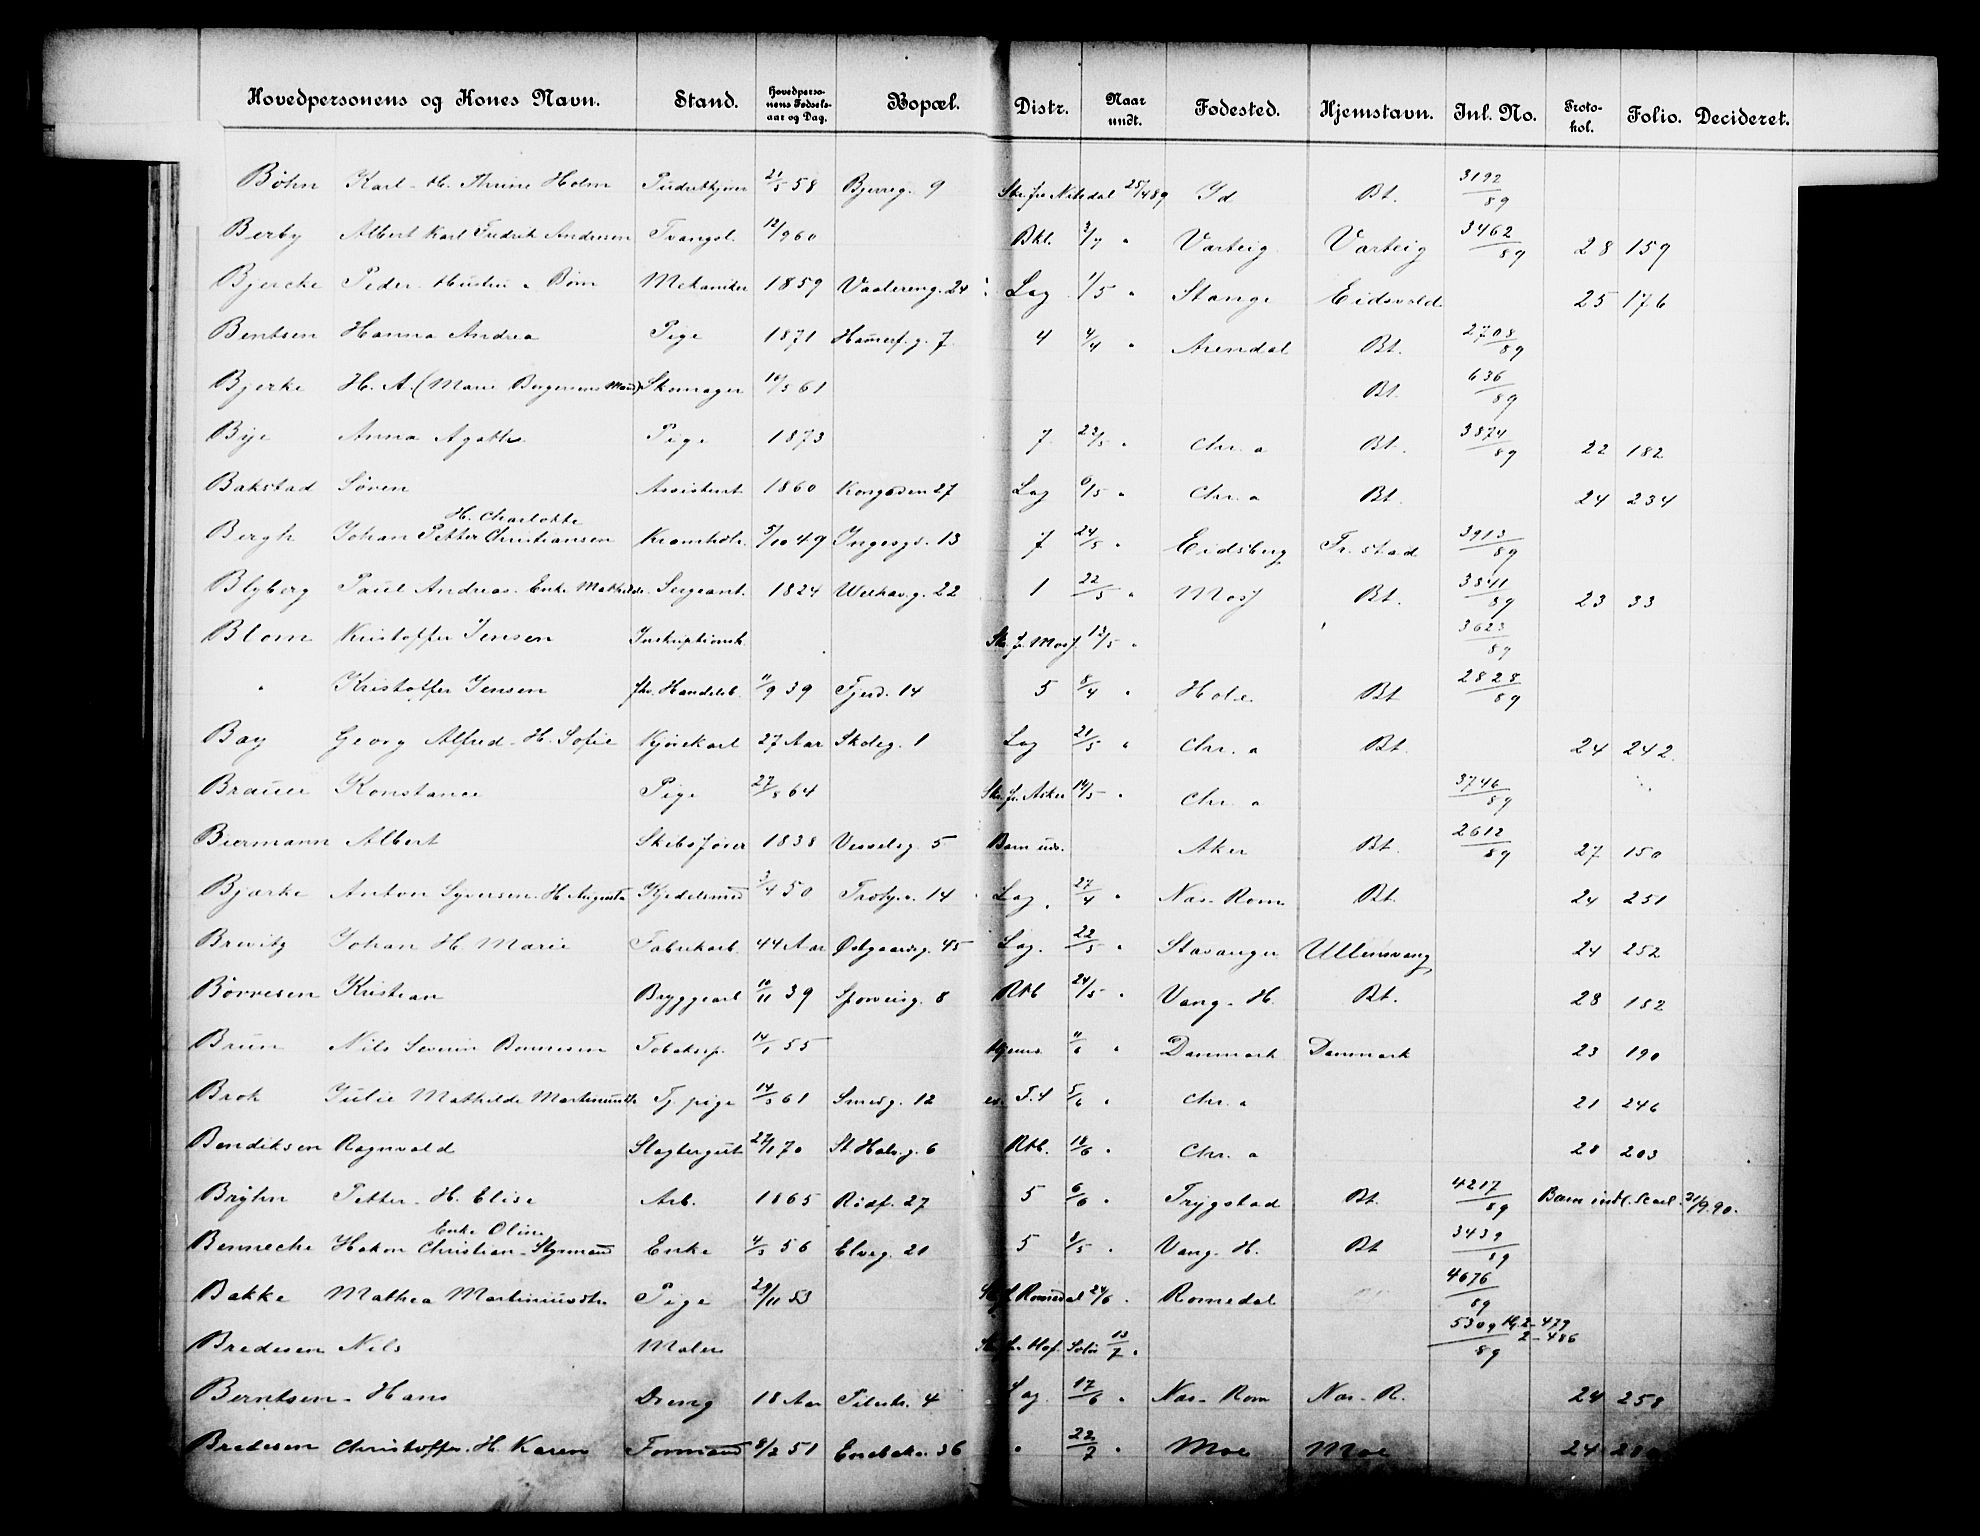 Hovedpersonens og Kones Navn. Stand. Hovedperso-nens Fødsels-aar og Dag. Bopæl. Distr. Naar undt. Fødested. Hjemstavn. Inl. No. Proto-kol. Folio. Decideret.
Bøhn Karl - H. Thrine Holm 21/5 58 9 25/4 89 Id Bt. 3192/89
Berby Albert Karl Fredrik Andersen Tvangsl. 12/9 60 Bkl. 3/7 " Varteig Varteig 3462/89 28 159
Bjercke Peder Hustru & Børn Mekaniker 1859 Vaalereng. 24 Lag 1/5 " Stange Eidsvold 25 176
Bentsen Hanna Andrea Pige 1871 Hamerf. g. 7 4 4/4 " Arendal Bt. 2708/89
Bjerke H. A. (Marie Bergersens Mand) Skomager 61 Bt. 636/89
Bye Anna Agathe Pige 1873 7 23/5 " Chr. a Bt. 3874/89 22 182
Bakstad Søren Assistent 1860 27 Lag 6/5 " Chr. a Bt. 24 234
H. Charlotte
Bergh Johan Petter Christiansen 5/10 49 13 7 24/5 " Eidsberg Fr. stad 3913/89
Blyberg Paul Andreas. Enke Mathilde Sergeant. 1824 Welhav. g. 22 1 22/5 " Moss Bt. 3841/89 23 33
Blom Kristoffer Jensen 13/5 " 3623/89
" Kristoffer Jensen fhv. Handelsb. 11/9 39 Fjerd. 14 5 8/4 " Hole Bt 2828/89
Bay Georg Alfred - H. Sofie Kjørekarl 27 Aar Skoleg. 1 Lag 21/5 " Chr. a Bt. 24 242.
Brauer Konstance Pige 27/8 64 Skr. fr. Asker 14/5 " Chr. a 3746/89
Biermann Albert Skibsfører 1838 Vesselsg. 5 Barn uds. Aker Bt. 2612/89 27 150
Bjærke Anton Syversen. H. Augusta Kjedelsmed 3/4 50 14 Lag. 27/4 " Næs - Rom Bt. 24 251
Brevitz Johan H. Marie Fabrikarb. 44 Aar Østgaardsg. 45 Lag. 22/5 " Stavanger Ullensvang 24 252
Børresen Kristian Bryggearb 10/11 39 Sporveisg. 8 Rkb 24/5 " Vang - H. Bt. 28 182
Brun Nils Severin 14/1 55 11/6 " Danmark Danmark 23 190
Broh Julie Mathilde Martinusdtr Tj. pige 14/3 61 Smedg. 12 5/6 " Chr. a 21 246
Bendiksen Ragnvald Slagtergut 27/1 70 St. Halv. g. 6 Rkb. 18/6 " Chr. a 28 203
Bryhn Petter - H. Elise Arb. 1865 Rødf. 27 5 6/6 " Trygstad Bt. 4217/89 Barn indl. 21/9. 90.
Enke Oline
Bennecke Hakon Christian - Styrmand Enke 4/3 56 Elveg. 21 5 8/5 " Vang. H. Bt 3439/89
Bakke Mathea Martiniusdtr Pige 29/11 53 Romedal 24/6 " Romedal 4676/89
Bredesen Nils Maler Hof. Solør 13/7 " 5309/89 2-479 2-486
Berntsen - Hans Dreng 18 Aar Pilestr. 4 Lag 17/6 " Næs - Rom Næs - R. 24 258
Bredesen Christoffer. H. Karen Formand 8/2 51 Enebakv. 36 " 22/7 " Moe Moe 24